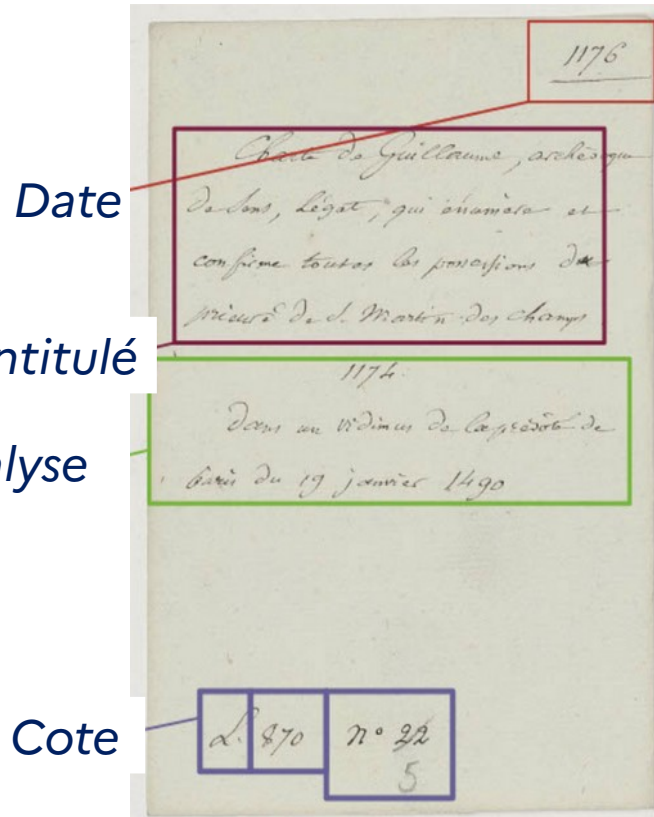 1176
Charte de Guillaume, archevêque
de Sens, Légat, qui énumère et
Date
confirme toutes les possessions du
prieuré de S. Martin des champs
ntitulé
1174.
Dans un vidimus de la prévôté de
alyse
Paris du 19 janvier 1490
Cote
L. 870 n° 22
5